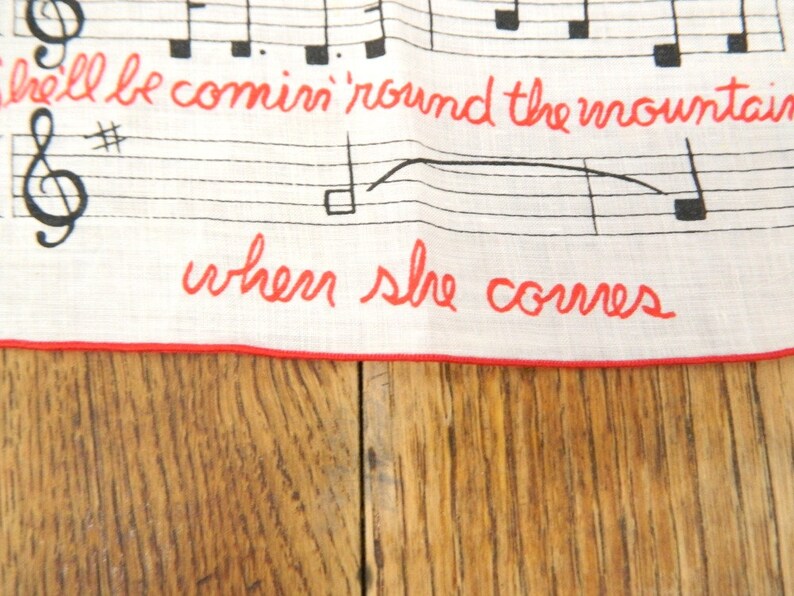 She'll be comin' 'round the mountain
when she comes